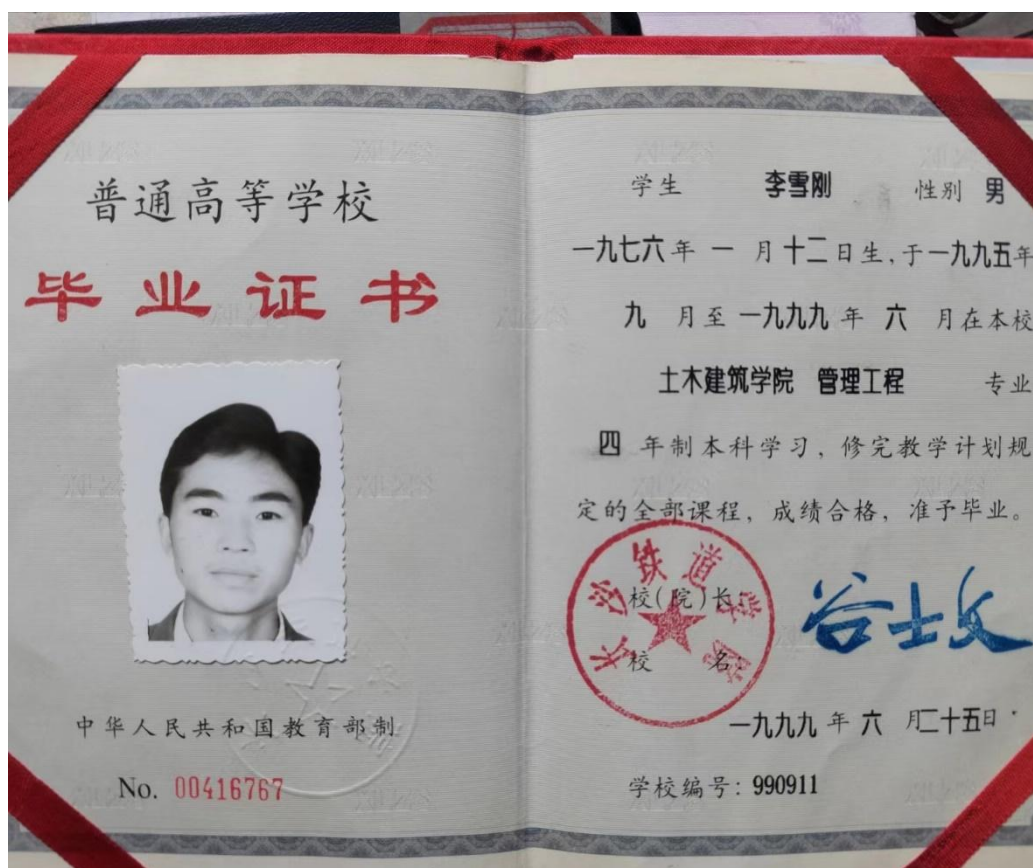 普通高等学校
毕业证书
中华人民共和国教育部制
No. 00416767
学生 李雪刚 性别 男
一九七六年 一 月十二日生,于一九九五年
九 月至一九九九年 六 月在本校
土木建筑学院 管理工程 专业
四 年制本科学习，修完教学计划规
定的全部课程，成绩合格，准予毕业。
校(院)长:
谷士文
校 名:
长沙铁道学院
一九九九年六 月二十五日
学校编号: 990911